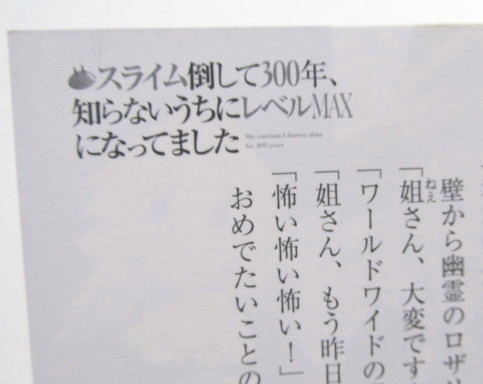 スライム倒して300年、
知らないうちにレベルMAX
になってました
She continued destroy slime
for 300 years
壁から幽霊のロザ
「姐さん、大変です
「ワールドワイドの
「姐さん、もう昨日
「怖い怖い怖い！」
おめでたいことの